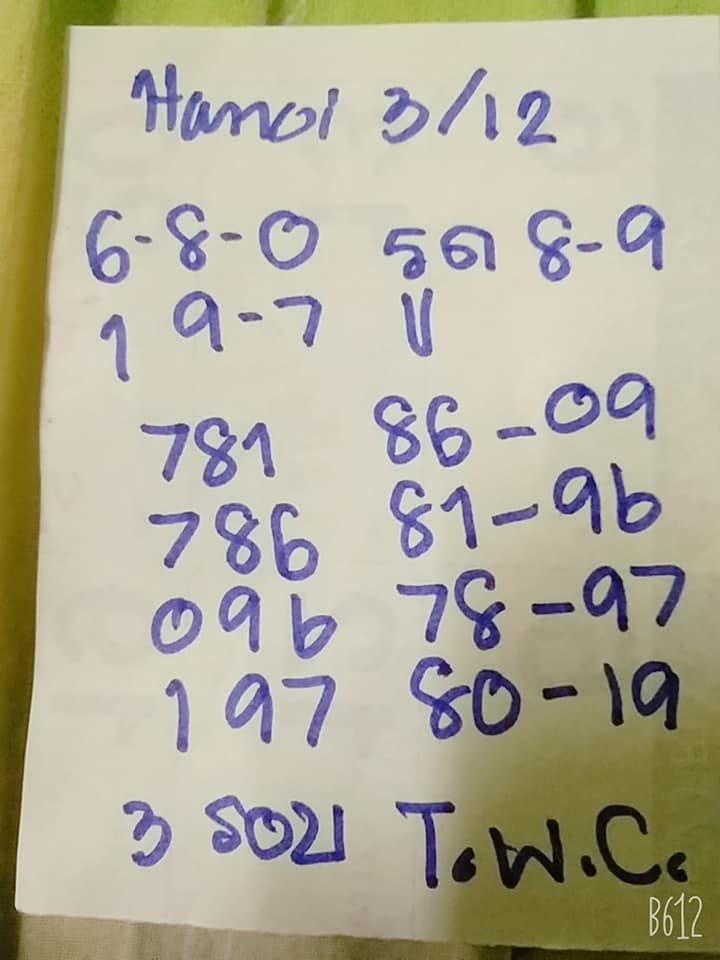 Hanoi 3/12
6-8-0 รูด 8-9
1 9-7 ||
781 86-09
786 81-96
096 78-97
197 80-19
3 รอบ T.W.C.
B612